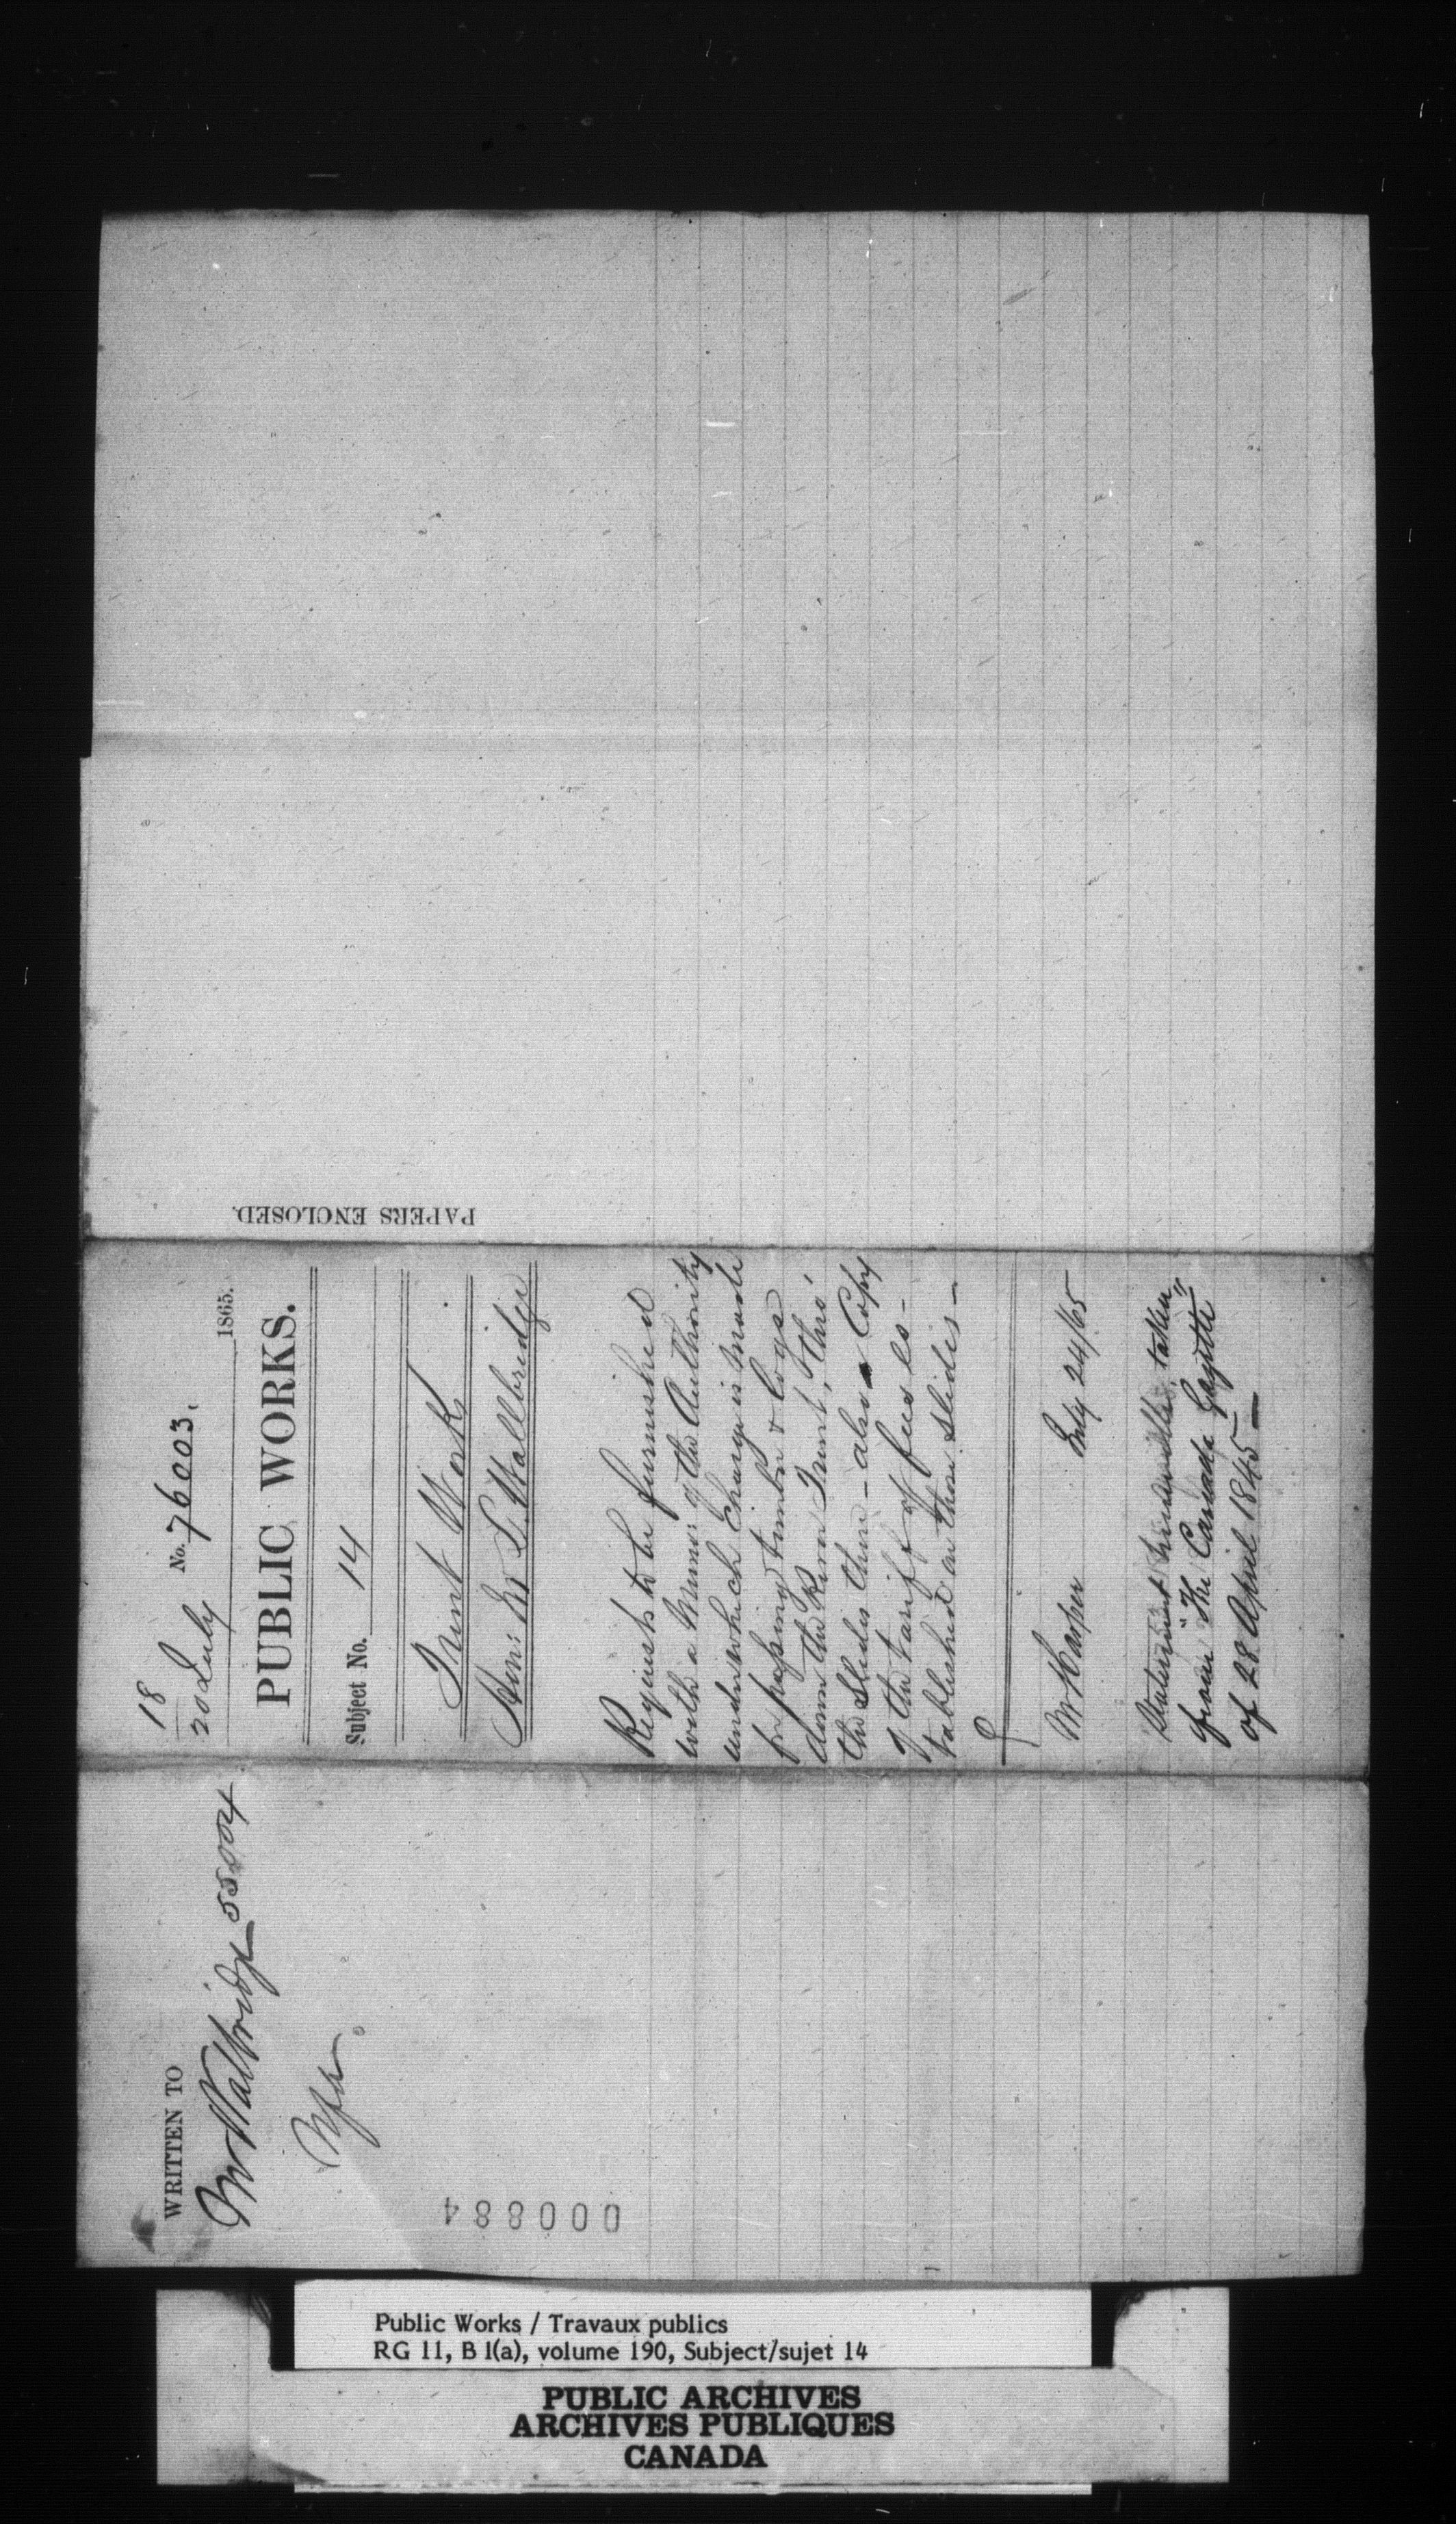 18
20 July No. 76003. 1865.
PUBLIC WORKS.
Subject No. 14
Trent Works
Hon: Mr L. Wallbridge
Requests to be furnished
with a Memo: of the Authority
under which charge is made
for passing timber & logs
down the River Trent, thro'
the Slides there - also Copy
of the tariff of fees es-
tablished on those slides -
Mr Harper July 24/65
Statement herewith, taken
from "The Canada Gazette"
of 28 April 1845 -
PAPERS ENCLOSED.
WRITTEN TO
Mr Wallbridge 55004
000884
Public Works / Travaux publics
RG 11, B 1(a), volume 190, Subject/sujet 14
PUBLIC ARCHIVES
ARCHIVES PUBLIQUES
CANADA